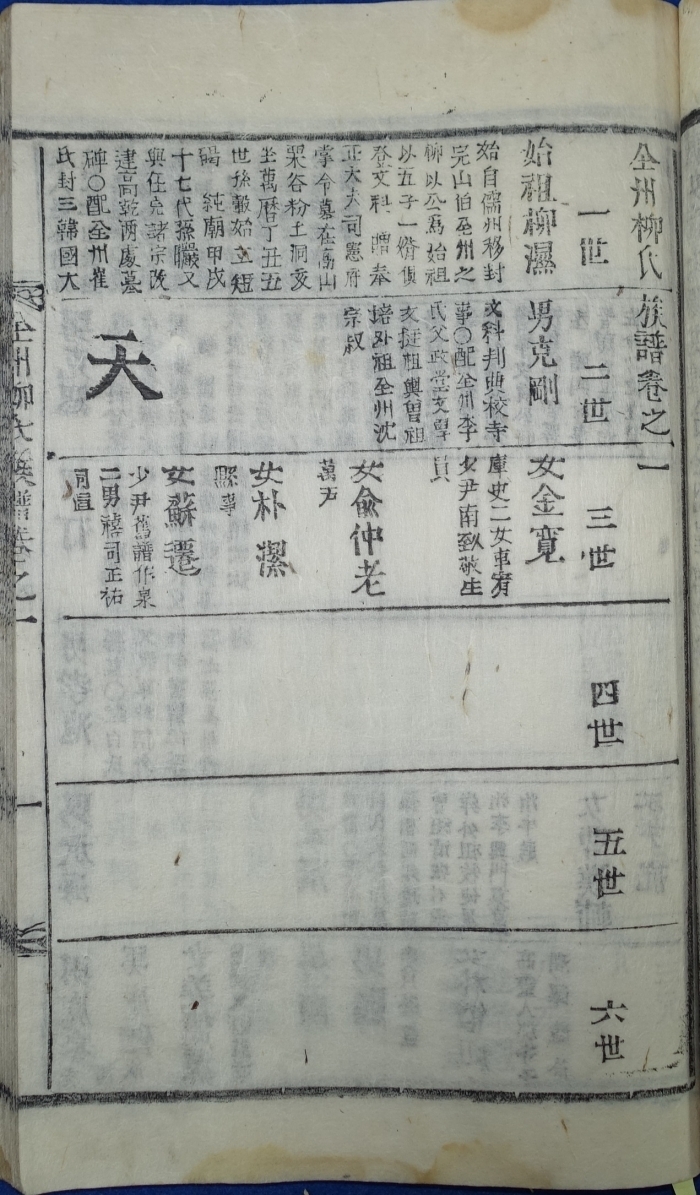 全州柳氏族譜卷之一
一世
始祖柳濕
始自儒州移封
完山伯全州之
柳以公爲始祖
以五子一壻俱
登文科 贈奉
正大夫司憲府
掌令墓在高山
栗谷粉土洞亥
坐萬曆丁丑五
世孫 始立短
碣 純廟甲戌
十七代孫 又
與任完諸宗改
建高乾兩處墓
碑○配全州崔
氏封三韓國大
二世
男克剛
文科判典校寺
事○配全州李
氏父政堂文學
文挺祖興曾祖
培外祖全州沈
宗叔
天
三世
女金寬
庫史二女車宥
少尹南致敬生
員
女兪仲老
萬戶
女朴潔
縣事
女蘇遷
少尹舊譜作泉
二男禧司正祐
司直
四世
五世
六世
全州柳氏族譜卷之一
一